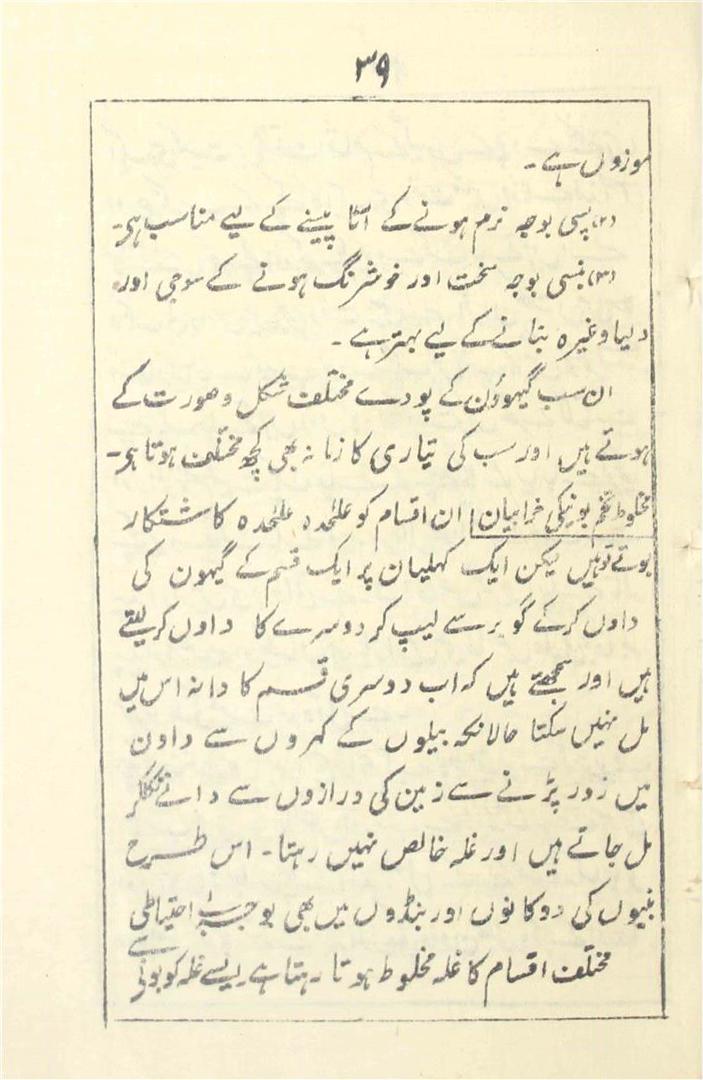 ۳۹
موزوں ہے۔
(۲) پسی بوجہ نرم ہونے کے آٹا پیسنے کے لیے مناسب ہی۔
(۳) بنسی بوجہ سخت اور خوشرنگ ہونے کے سوجی اور
دلیا وغیرہ بنانے کے لیے بہتر ہے۔
ان سب گیہوؤن کے پودے مختلف شکل وصورت کے
ہوتے ہیں اور سب کی تیاری کا زمانہ بھی کچھ مختلف ہوتا ہی۔
مخلوط تخم بونیکی خرابیان ان اقسام کو علٰحدہ علٰحدہ کاشتکار
بوتے تو ہیں لیکن ایک کہلیان پر ایک قسم کے گیہون کی
داون کرکے گوبر سے لیپ کر دوسرے کا داون کر لیتے
ہیں اور سمجھتے ہیں کہ اب دوسری قسم کا دانہ اس میں
مل نہیں سکتا حالانکہ بیلوں کے کہروں سے داون
میں زور پڑنے سے زمین کی درازوں سے دانے نکلکر
مل جاتے ہیں اور غلہ خالص نہیں رہتا۔ اس طرح
بنیوں کی دوکانوں اور بنڈوں میں بھی بوجہ بے احتیاطی
مختلف اقسام کا غلہ مخلوط ہوتا رہتا ہے ایسے غلہ کو بونے سے